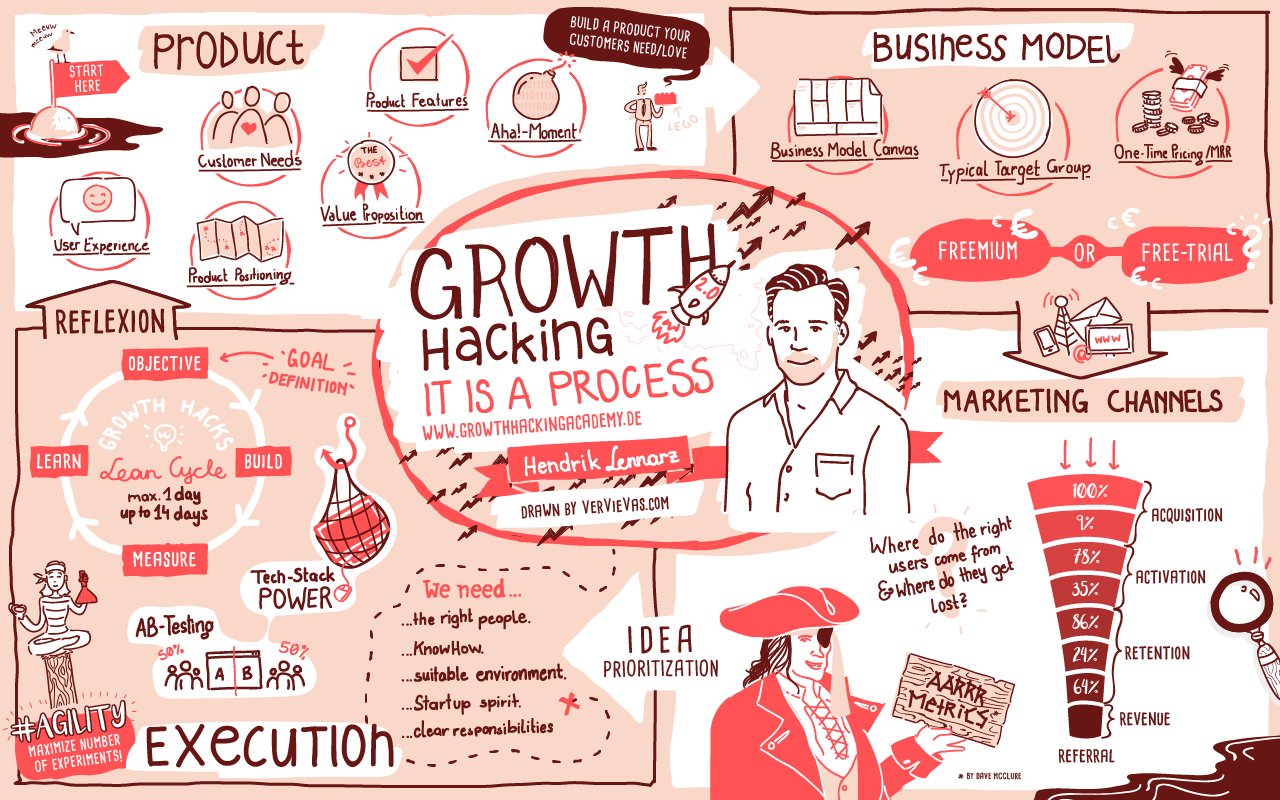 Meeuw
meeuw
START
HERE
PRODUCT
Product Features
Aha!-Moment
BUILD A PRODUCT YOUR
CUSTOMERS NEED/LOVE
LEGO
Customer Needs
THE
Best
Value Proposition
User Experience
Product Positioning
BUSINESS MODEL
Business Model Canvas
Typical Target Group
One-Time Pricing /MRR
€ € € € € € €
FREEMIUM
OR
FREE-TRIAL
?
@
WWW
MARKETING CHANNELS
GROWTH
2.0
Hacking
IT IS A PROCESS
WWW.GROWTHHACKINGACADEMY.DE
Hendrik Lennarz
DRAWN BY VERVIEVAS.COM
100%
9%
78%
35%
86%
24%
64%
ACQUISITION
ACTIVATION
RETENTION
REVENUE
REFERRAL
Where do the right
users come from
& where do they get
lost?
?
AARRR
METRICS*
* BY DAVE MCCLURE
IDEA
PRIORITIZATION
We need...
...the right people.
...KnowHow.
...suitable environment.
...Startup spirit.
...clear responsibilities
x
EXECUTION
REFLEXION
OBJECTIVE
GOAL
DEFINITION
GROWTH HACKS
Lean Cycle
max. 1 day
up to 14 days
LEARN
BUILD
MEASURE
Tech-Stack
POWER
AB-Testing
50%
50%
A B
#AGILITY
MAXIMIZE NUMBER
OF EXPERIMENTS!